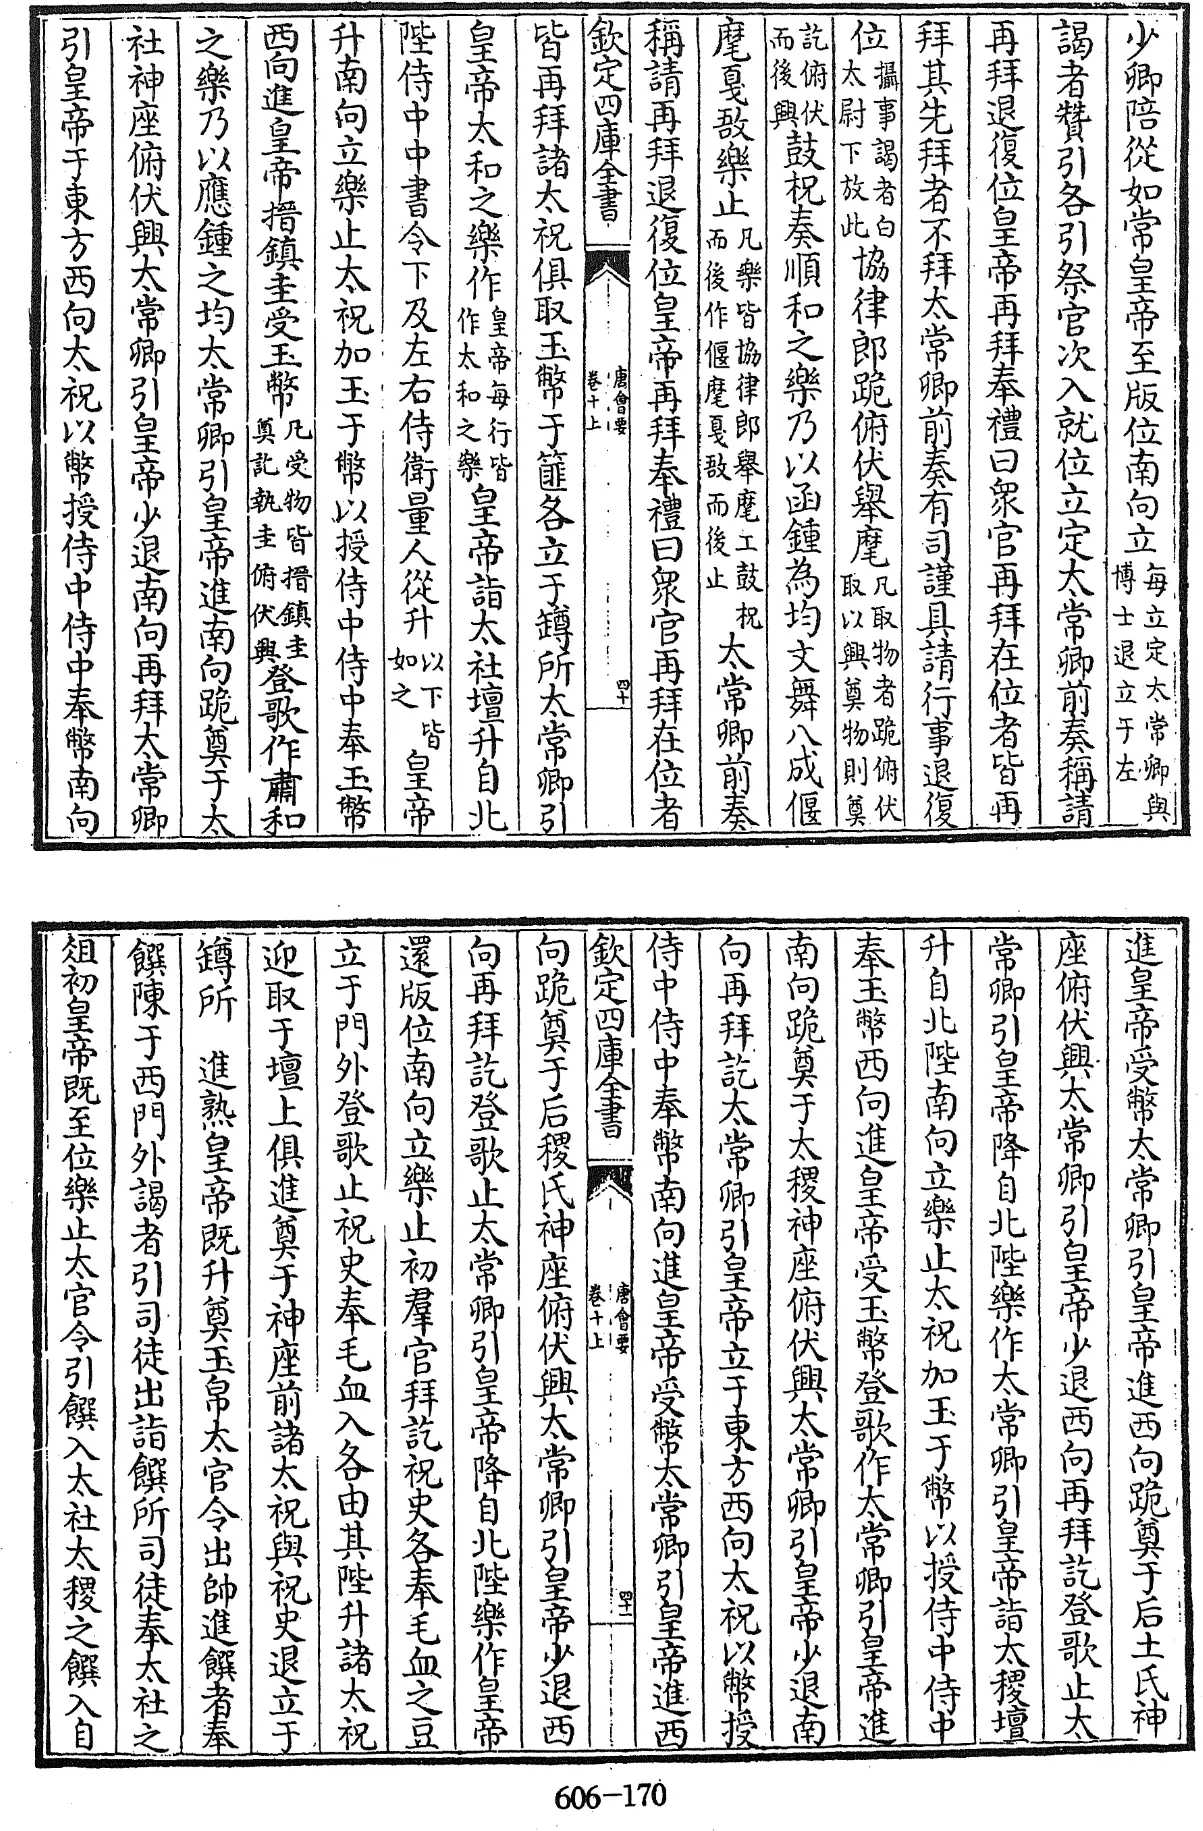 少卿陪從如常皇帝至版位南向立每立定太常卿與博士退立于左
謁者贊引各引祭官次入就位立定太常卿前奏稱請
再拜退復位皇帝再拜奉禮曰衆官再拜在位者皆再
拜其先拜者不拜太常卿前奏有司謹具請行事退復
位攝事謁者白太尉下放此協律郎跪俯伏舉麾凡取物者跪俯伏取以興奠物則奠
訖俯伏而後興鼓柷奏順和之樂乃以函鍾為均文舞八成偃
麾戛敔樂止凡樂皆協律郎舉麾工鼓柷而後作偃麾戛敔而後止太常卿前奏
稱請再拜退復位皇帝再拜奉禮曰衆官再拜在位者
欽定四庫全書 唐會要 卷十上 四十
皆再拜諸太祝俱取玉幣于篚各立于鐏所太常卿引
皇帝太和之樂作皇帝每行皆作太和之樂皇帝詣太社壇升自北
陛侍中中書令下及左右侍衛量人從升以下皆如之皇帝
升南向立樂止太祝加玉于幣以授侍中侍中奉玉幣
西向進皇帝搢鎮圭受玉幣凡受物皆搢鎮圭奠訖執圭俯伏興登歌作肅和
之樂乃以應鍾之均太常卿引皇帝進南向跪奠于太
社神座俯伏興太常卿引皇帝少退南向再拜太常卿
引皇帝于東方西向太祝以幣授侍中侍中奉幣南向
進皇帝受幣太常卿引皇帝進西向跪奠于后土氏神
座俯伏興太常卿引皇帝少退西向再拜訖登歌止太
常卿引皇帝降自北陛樂作太常卿引皇帝詣太稷壇
升自北陛南向立樂止太祝加玉于幣以授侍中侍中
奉玉幣西向進皇帝受玉幣登歌作太常卿引皇帝進
南向跪奠于太稷神座俯伏興太常卿引皇帝少退南
向再拜訖太常卿引皇帝立于東方西向太祝以幣授
侍中侍中奉幣南向進皇帝受幣太常卿引皇帝進西
欽定四庫全書 唐會要 卷十上 四十一
向跪奠于后稷氏神座俯伏興太常卿引皇帝少退西
向再拜訖登歌止太常卿引皇帝降自北陛樂作皇帝
還版位南向立樂止初羣官拜訖祝史各奉毛血之豆
立于門外登歌止祝史奉毛血入各由其陛升諸太祝
迎取于壇上俱進奠于神座前諸太祝與祝史退立于
鐏所 進熟皇帝既升奠玉帛太官令出帥進饌者奉
饌陳于西門外謁者引司徒出詣饌所司徒奉太社之
俎初皇帝既至位樂止太官令引饌入太社太稷之饌入自
606-170